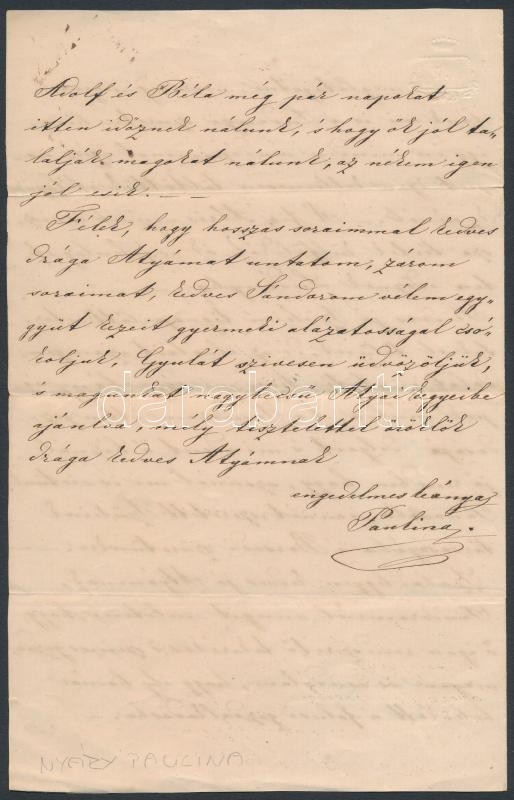 Adolf és Béla még pár napokat
itten időznek nálunk, s hogy ők jól ta-
lálják magokat nálunk, az nékem igen
jól esik. — —
Félek, hogy hosszas soraimmal kedves
drága Atyámat untatom, zárom
soraimat, kedves Sándorom vélem egy-
gyüt kezeit gyermeki alázatosságal csó-
koljuk, Gyulát szivesen üdvözöljük,
s magunkat nagykegyű Atyai kegyeibe
ajánlva mély tisztelettel öröklök
drága kedves Atyámnak
engedelmes leánya
Paulina.
darabanth
NYÁRY PAULINA